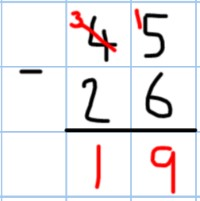 3 4 15
- 26
19